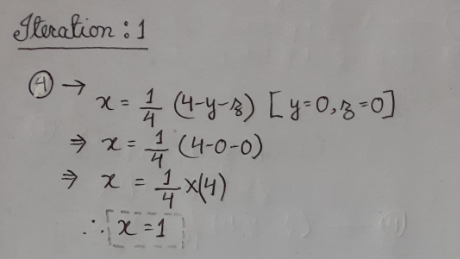 Iteration : 1
④ → x = 1/4 (4-y-z) [y=0, z=0]
⇒ x = 1/4 (4-0-0)
⇒ x = 1/4 x(4)
∴ x = 1